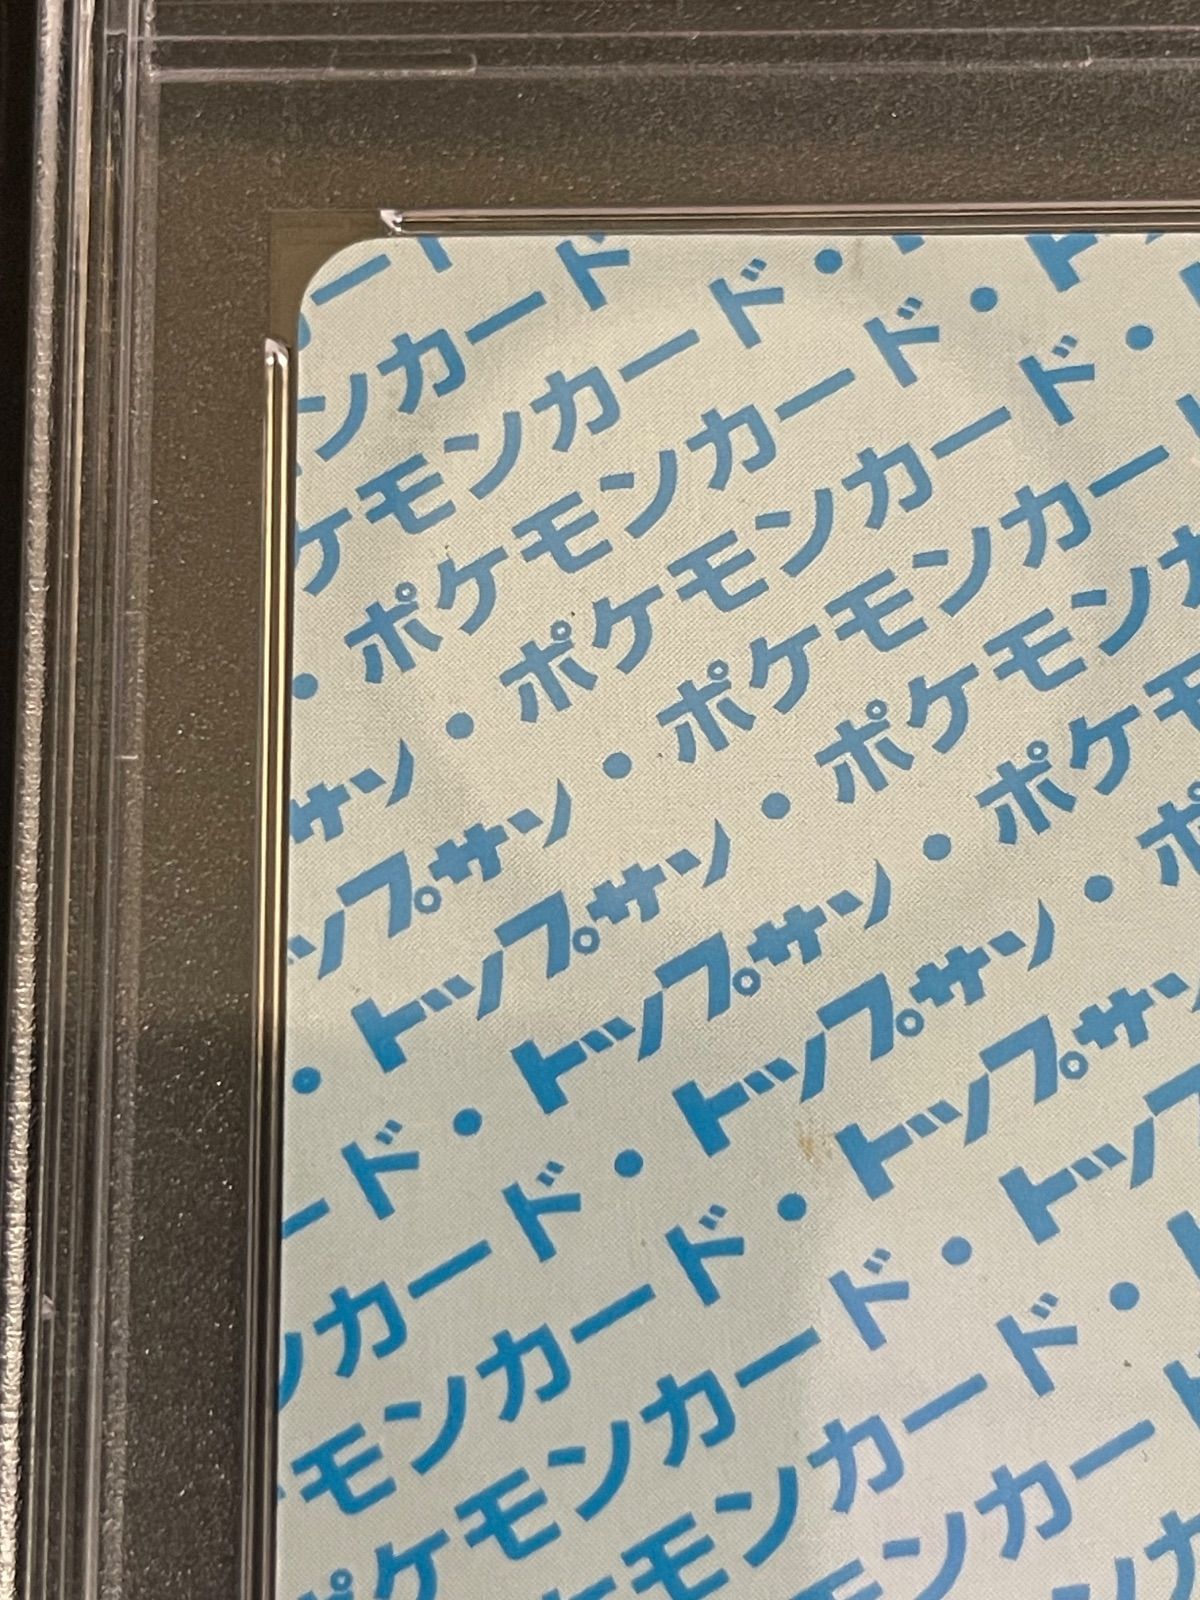 ード
ンカード
ケモンカード・ト
・ポケモンカード・ト
サン・ポケモンカード・
ップサン・ポケモンカー
・トップサン・ポケモン
ード・トップサン・ポケモ
ンカード・トップサン・ポ
モンカード・トップサン
ポケモンカード・トップ
ケモンカード・ト
モンカー
ンカ